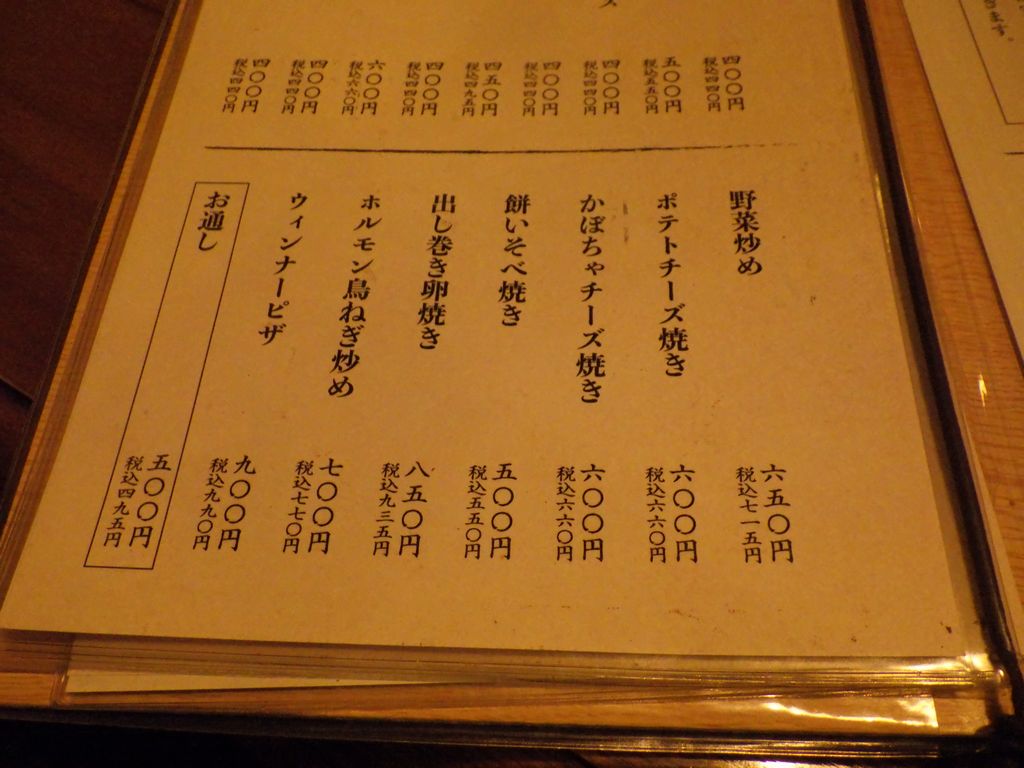 ます。
四〇〇円
税込四四〇円
五〇〇円
税込五五〇円
四〇〇円
税込四四〇円
四〇〇円
税込四四〇円
四五〇円
税込四九五円
四〇〇円
税込四四〇円
六〇〇円
税込六六〇円
四〇〇円
税込四四〇円
四〇〇円
税込四四〇円
野菜炒め
六五〇円
税込七一五円
ポテトチーズ焼き
六〇〇円
税込六六〇円
かぼちゃチーズ焼き
六〇〇円
税込六六〇円
餅いそべ焼き
五〇〇円
税込五五〇円
出し巻き卵焼き
八五〇円
税込九三五円
ホルモン鳥ねぎ炒め
七〇〇円
税込七七〇円
ウィンナーピザ
九〇〇円
税込九九〇円
お通し
五〇〇円
税込四九五円